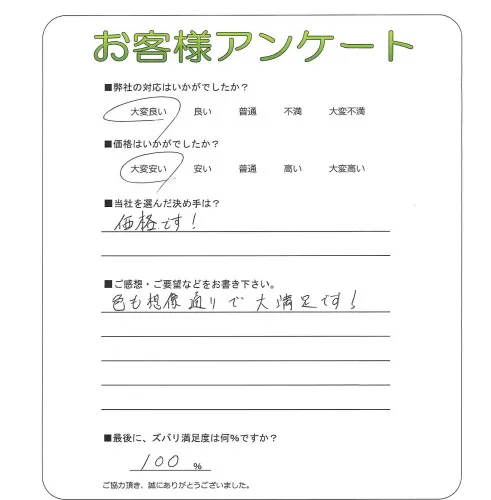 お客様アンケート
■弊社の対応はいかがでしたか？
大変良い 良い 普通 不満 大変不満
■価格はいかがでしたか？
大変安い 安い 普通 高い 大変高い
■当社を選んだ決め手は？
価格です！
■ご感想・ご要望などをお書き下さい。
色も想像通りで大満足です！
■最後に、ズバリ満足度は何%ですか？
100 %
ご協力頂き、誠にありがとうございました。